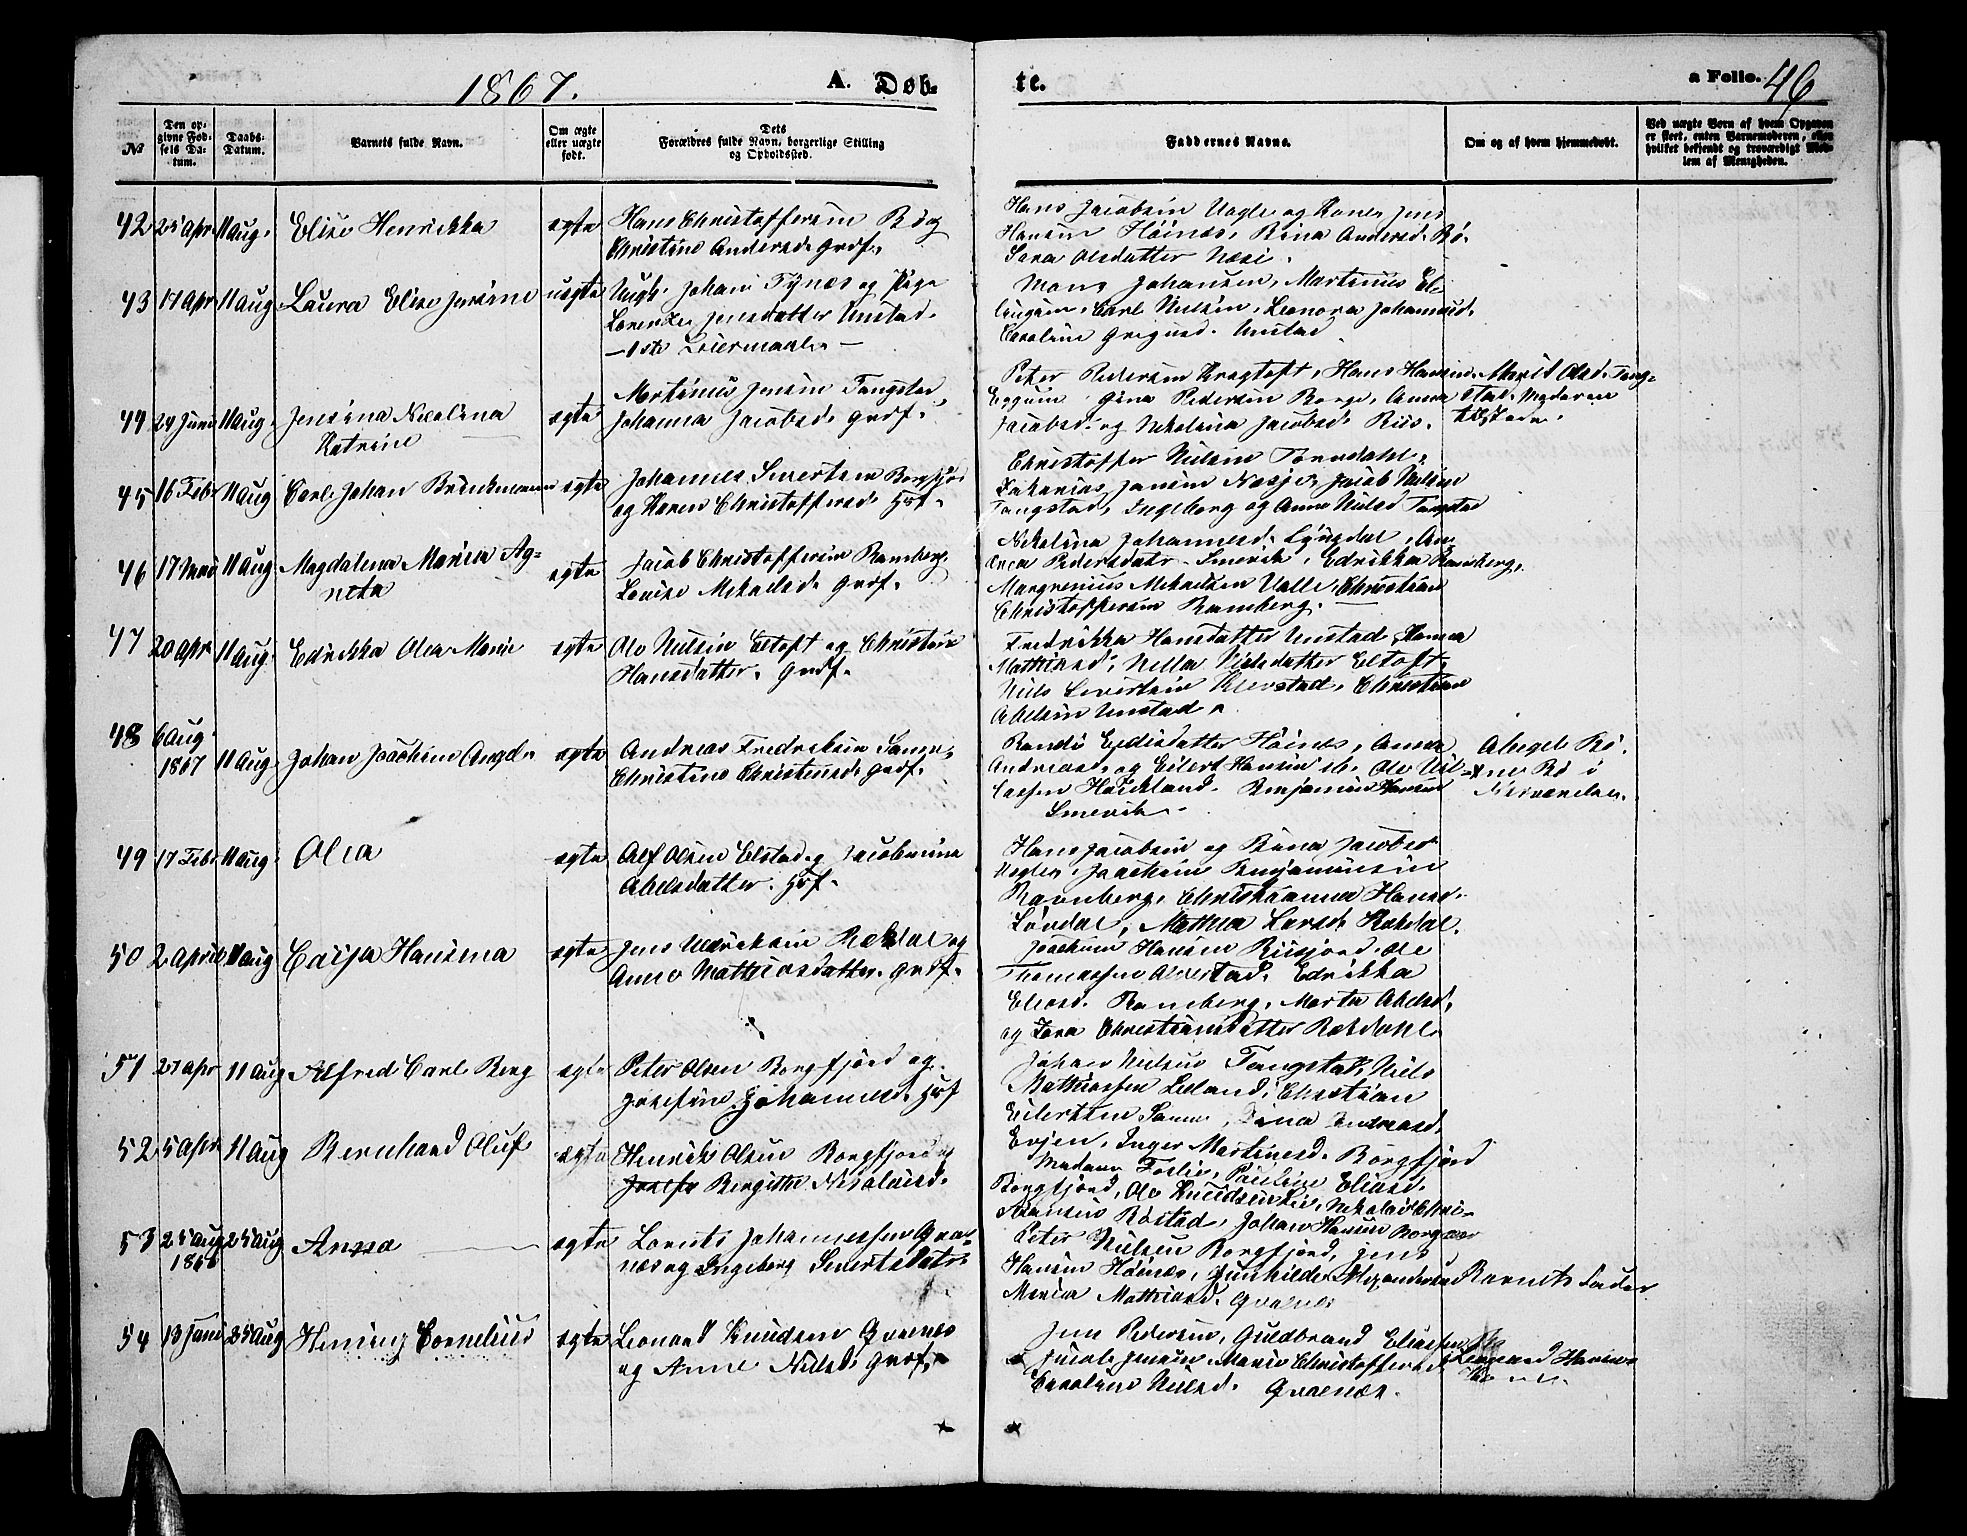 1867.
A. Døb-
te.
a Folio. 46
№
Den op-
givne Fød-
sels Da-
tum.
Daabs-
Datum.
Barnets fulde Navn.
Om ægte
eller uægte
født.
Dets
Forældres fulde Navn, borgerlige Stilling
og Opholdssted.
Faddernes Navne.
Om og af hvem hjemmedøbt.
Ved uægte Børn af hvem Opgaven
er skeet, enten Barnemoderen, eller
hvilket bekjendt og troværdigt Med-
lem af Menigheden.
42 25 Apr 11 Aug. Elise Henrikka ægte Hans Christoffersen Bø og
Christine Andersd. Grdf.
Hans Jacobsen Uagle og Kone, Jens
Hansen Høines, Bina Andersd. Bø.
Sara Olsdatter Næsi.
43 17 Apr 11 Aug Laura Elise Jensine uægte Ungk. Johan Tynes og Pige
Lorentze Jensdatter Unstad.
— 1ste Leiermaal. —
Mons Johansen, Martinus El-
lingsen, Carl Nielsen, Leonora Johannesd.
Caroline Gregusd. Unstad
44 24 Juni 11 Aug. Jensina Nicolina
Katrine
ægte Martinus Jensen Tangstad
Johanna Jacobsd. Grdf.
Peter Pedersen Kragtoft, Hans Hansen
Eggum Gina Pedersen Borge, Anna
Jacobsd. og Nikolina Jacobsd. Riis.
Marit Olsd. Tang-
stad, Moderen
tilstede.
45 16 Febr 11 Aug Carl Johan Brinkmann ægte Johannes Sivertsen Borgfjord
og Karen Christoffersd. Hsf.
Christoffer Nielsen Torvdahl,
Zakarias Jansen Næsje, Jacob Nielsen
Tangstad, Ingeborg og Anne Nielsd Tangstad
46 17 Mai 11 Aug Magdalena Maria Ag-
neta
ægte Jacob Christoffersen Ramberg,
Lovise Mikalsd. Grdf.
Nikolina Johannesd. Lyngdal, An-
Pedersdatr. Smevik, Edrikka Ramberg,
Margrenius Mikaelsen Valle, Christian
Christoffersen Ramberg. —
47 20 Apr 11 Aug. Edrikka Olea Marie ægte Ole Nielsen Eltoft og Christine
Hansdatter. Grdf.
Fredrikka Hansdatter Unstad, Hanna
Mathiasd., Nella Nielsdatter Eltoft,
Niels Sivertsen Klevstad, Christian
Abelsen Unstad.
48 6 Aug.
1867 11 Aug Johan Joachim Angel ægte Andreas Fredriksen Sanne,
Christine Christensd. Grdf.
Høines, Anna
Andreasd. og Eilert Hansen ib. Ole Vil-
Haukland. Benjamin Hansen
Smevik.
Abigel Bø.
Bø i
Nærværelse.
49 17 Febr. 11 Aug. Olea ægte Alf Olsen Elstad og Jacobmine
Abelsdatter. Hsf.
Hans Jacobsen og Bina Jacobsd
Joachim Benjaminsen
Ramberg, Christianna Hansd.
Lyndal, Mathea Larsd. Rekdal.
50 2 April 11 Aug Caisa Hansina ægte Jens Henriksen Rekdal og
Anne Mathiasdatter. Grdf.
Joachim Hansen Riisjord, Ole
Thomassen Alvestad, Edrikka
Eliasd. Ramberg, Marta Abelsd.
og Sara Christiansdatter Rekdahl
51 27 Apr 11 Aug Alfred Carl Berg ægte Peter Olsen Borgfjord og
Josefine Johannesd. Hsf
Johan Nielsen Tangstad, Niels
Mathiassen Liland, Christian
Eilertsen Sanne, Andreasd.
Evjen, Inger Martinesd. Borgfjord
52 5 Apr 11 Aug Bernhard Oluf ægte Henrik Olsen Borgfjord og
Bergitte Nikolaisd.
Madam Foslie, Pauline Eliasd.
Borgfjord, Ole Knudsen Lie, Nikolai Chri-
stiansen Røstad, Johan Hansen Borgvær
53 25 Aug
186 25 Aug Anna ægte Lorents Johannessen Qval-
næs og Ingeborg Sivertsdatr.
Peter Nielsen Borgfjord, Jens
Hansen Høines, Gunhilde Alexandersd
Maria Mathiasd. Qvalnes
Barnets Fader
54 13 Juni 25 Aug Hening Cornelius ægte Leonard Knudsen Qvalnes
og Anne Nielsd. Grdf.
Jens Pedersen, Guldbrand Eliassen
Jacob Jensen, Marie Christoffersd.
Caroline Nielsd. Qvalnæs.
Leonard Hansen